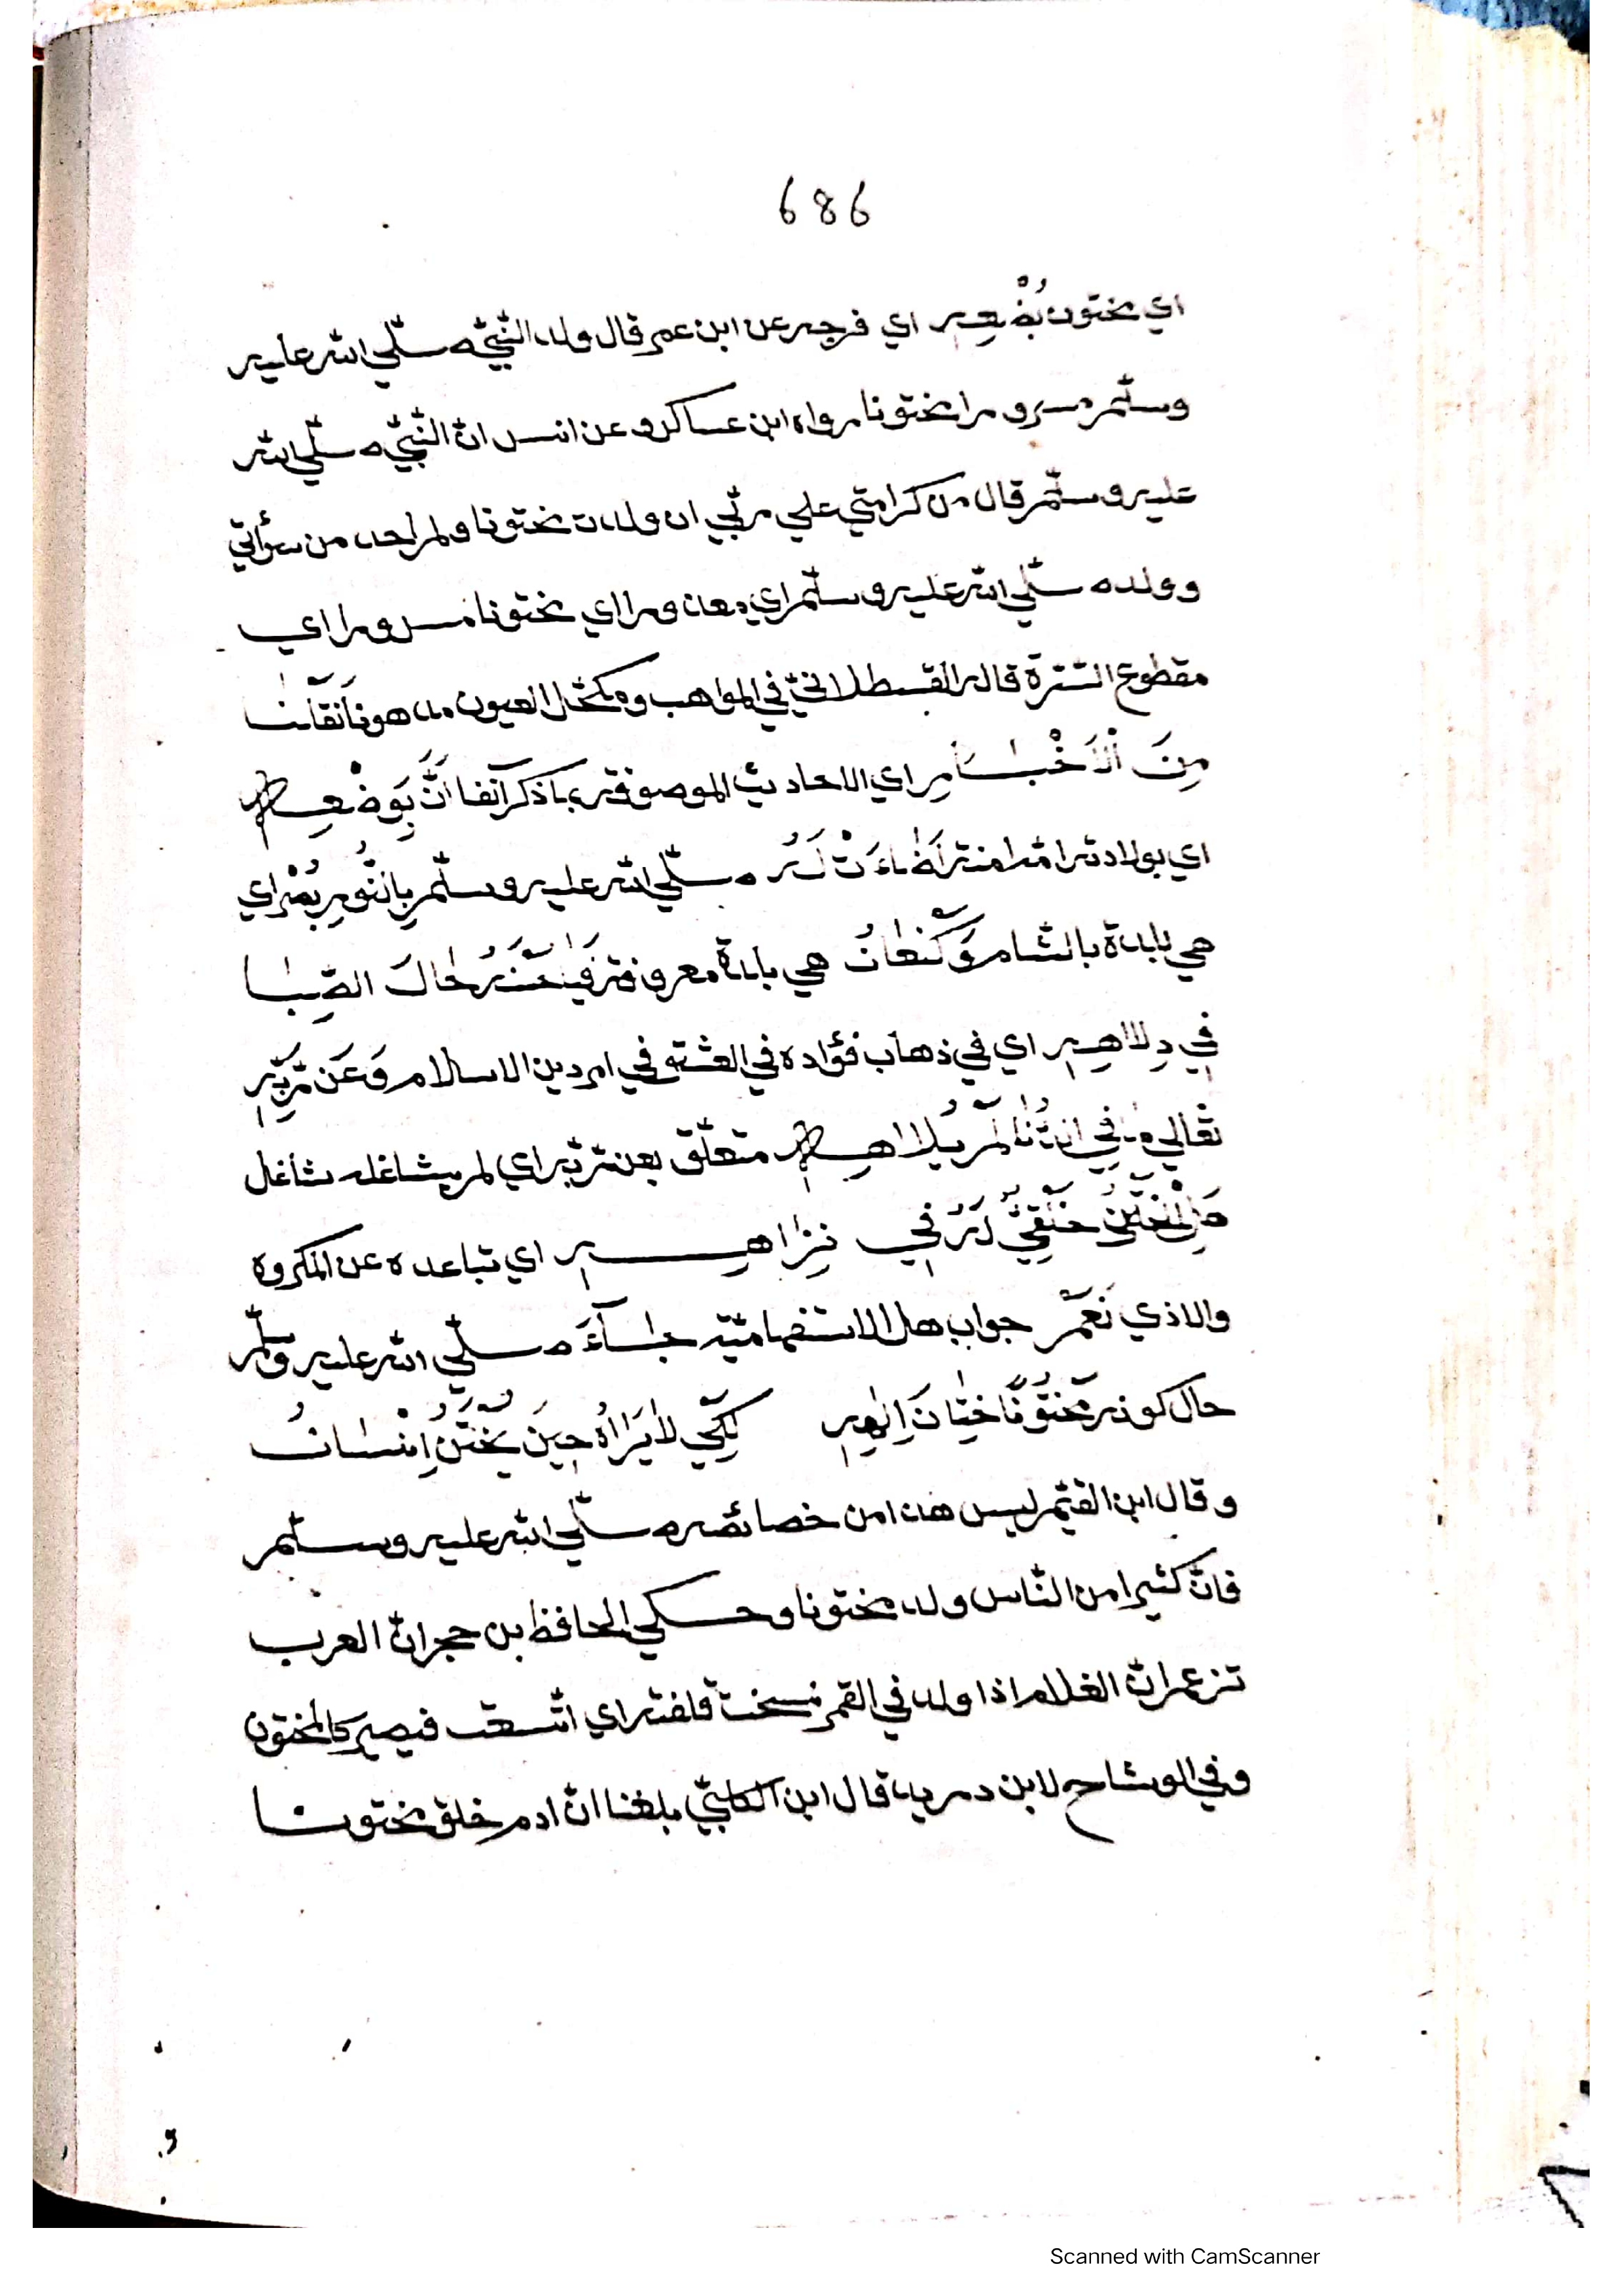 686
اي مختون بُضْعِهِ اي فرجه عن ابن عمر قال ولد النّبيّ صلّي الله عليه
وسلّم مسرورا مختونا رواه ابن عساكر وعن انس انّ النّبيّ صلّي الله
عليه وسلّم قال من كرامتي علي ربّي ان ولدت مختونا ولم ير احد من سؤاتي
وولد صلّي الله عليه وسلّم اي معذورا اي مختونا مسرورا اي
مقطوع السّرّة قاله القسطلانيّ في المواهب ومكحّل العيون مدهونا نَقَلْنَا
مِنَ ٱلْاَخْبَارِ اي الاحاديث الموصوفة بما ذكر آنفا اَنَّ بِوَضْعِهِ
اي بولادة امّه امنة اَضَاءَتْ لَهُ صلّي الله عليه وسلّم بِاَنْوُرِ بُصْرَاي
هي بلدة بالشّام وَكَنْعَانُ هي بلدة معروفة فَيَا مَنْ لَهُ حَالَ الصِّبَا
فِي دِلَاهِهِ اي في ذهاب فؤاده في العشق في امر دين الاسلام وَعَن رَبِّهِ
تعالي في اَنْ لَمْ يُلَاهِهِ متعلّق بعن ربّه اي لم يشاغله شاغل
هَلِ الْخَتْنُ خَلْقِيٌّ لَهُ فِي نِزَاهِهِ اي تباعده عن المكروه
والاذي نَعَمْ جواب هل الاستفهاميّة جَاءَ صلّي الله عليه وسلّم
حال كونه مَخْتُونًا خِتَانَ اِلٰهِهِ لِكَيْ لَا يَرَاهُ حِينَ يُخْتَنُ اِنْسَانُ
وقال ابن القيّم ليس هذا من خصائصه صلّي الله عليه وسلّم
فانّ كثيرا من النّاس ولد مختونا وحكي الحافظ بن حجر انّ العرب
تزعم انّ الغلام اذا ولد في القمر فسخت قلفته اي اتّسعت فيصير كالمختون
وفي الوشاح لابن دريد قال ابن الكلبيّ بلغنا انّ ادم خلق مختونا
Scanned with CamScanner